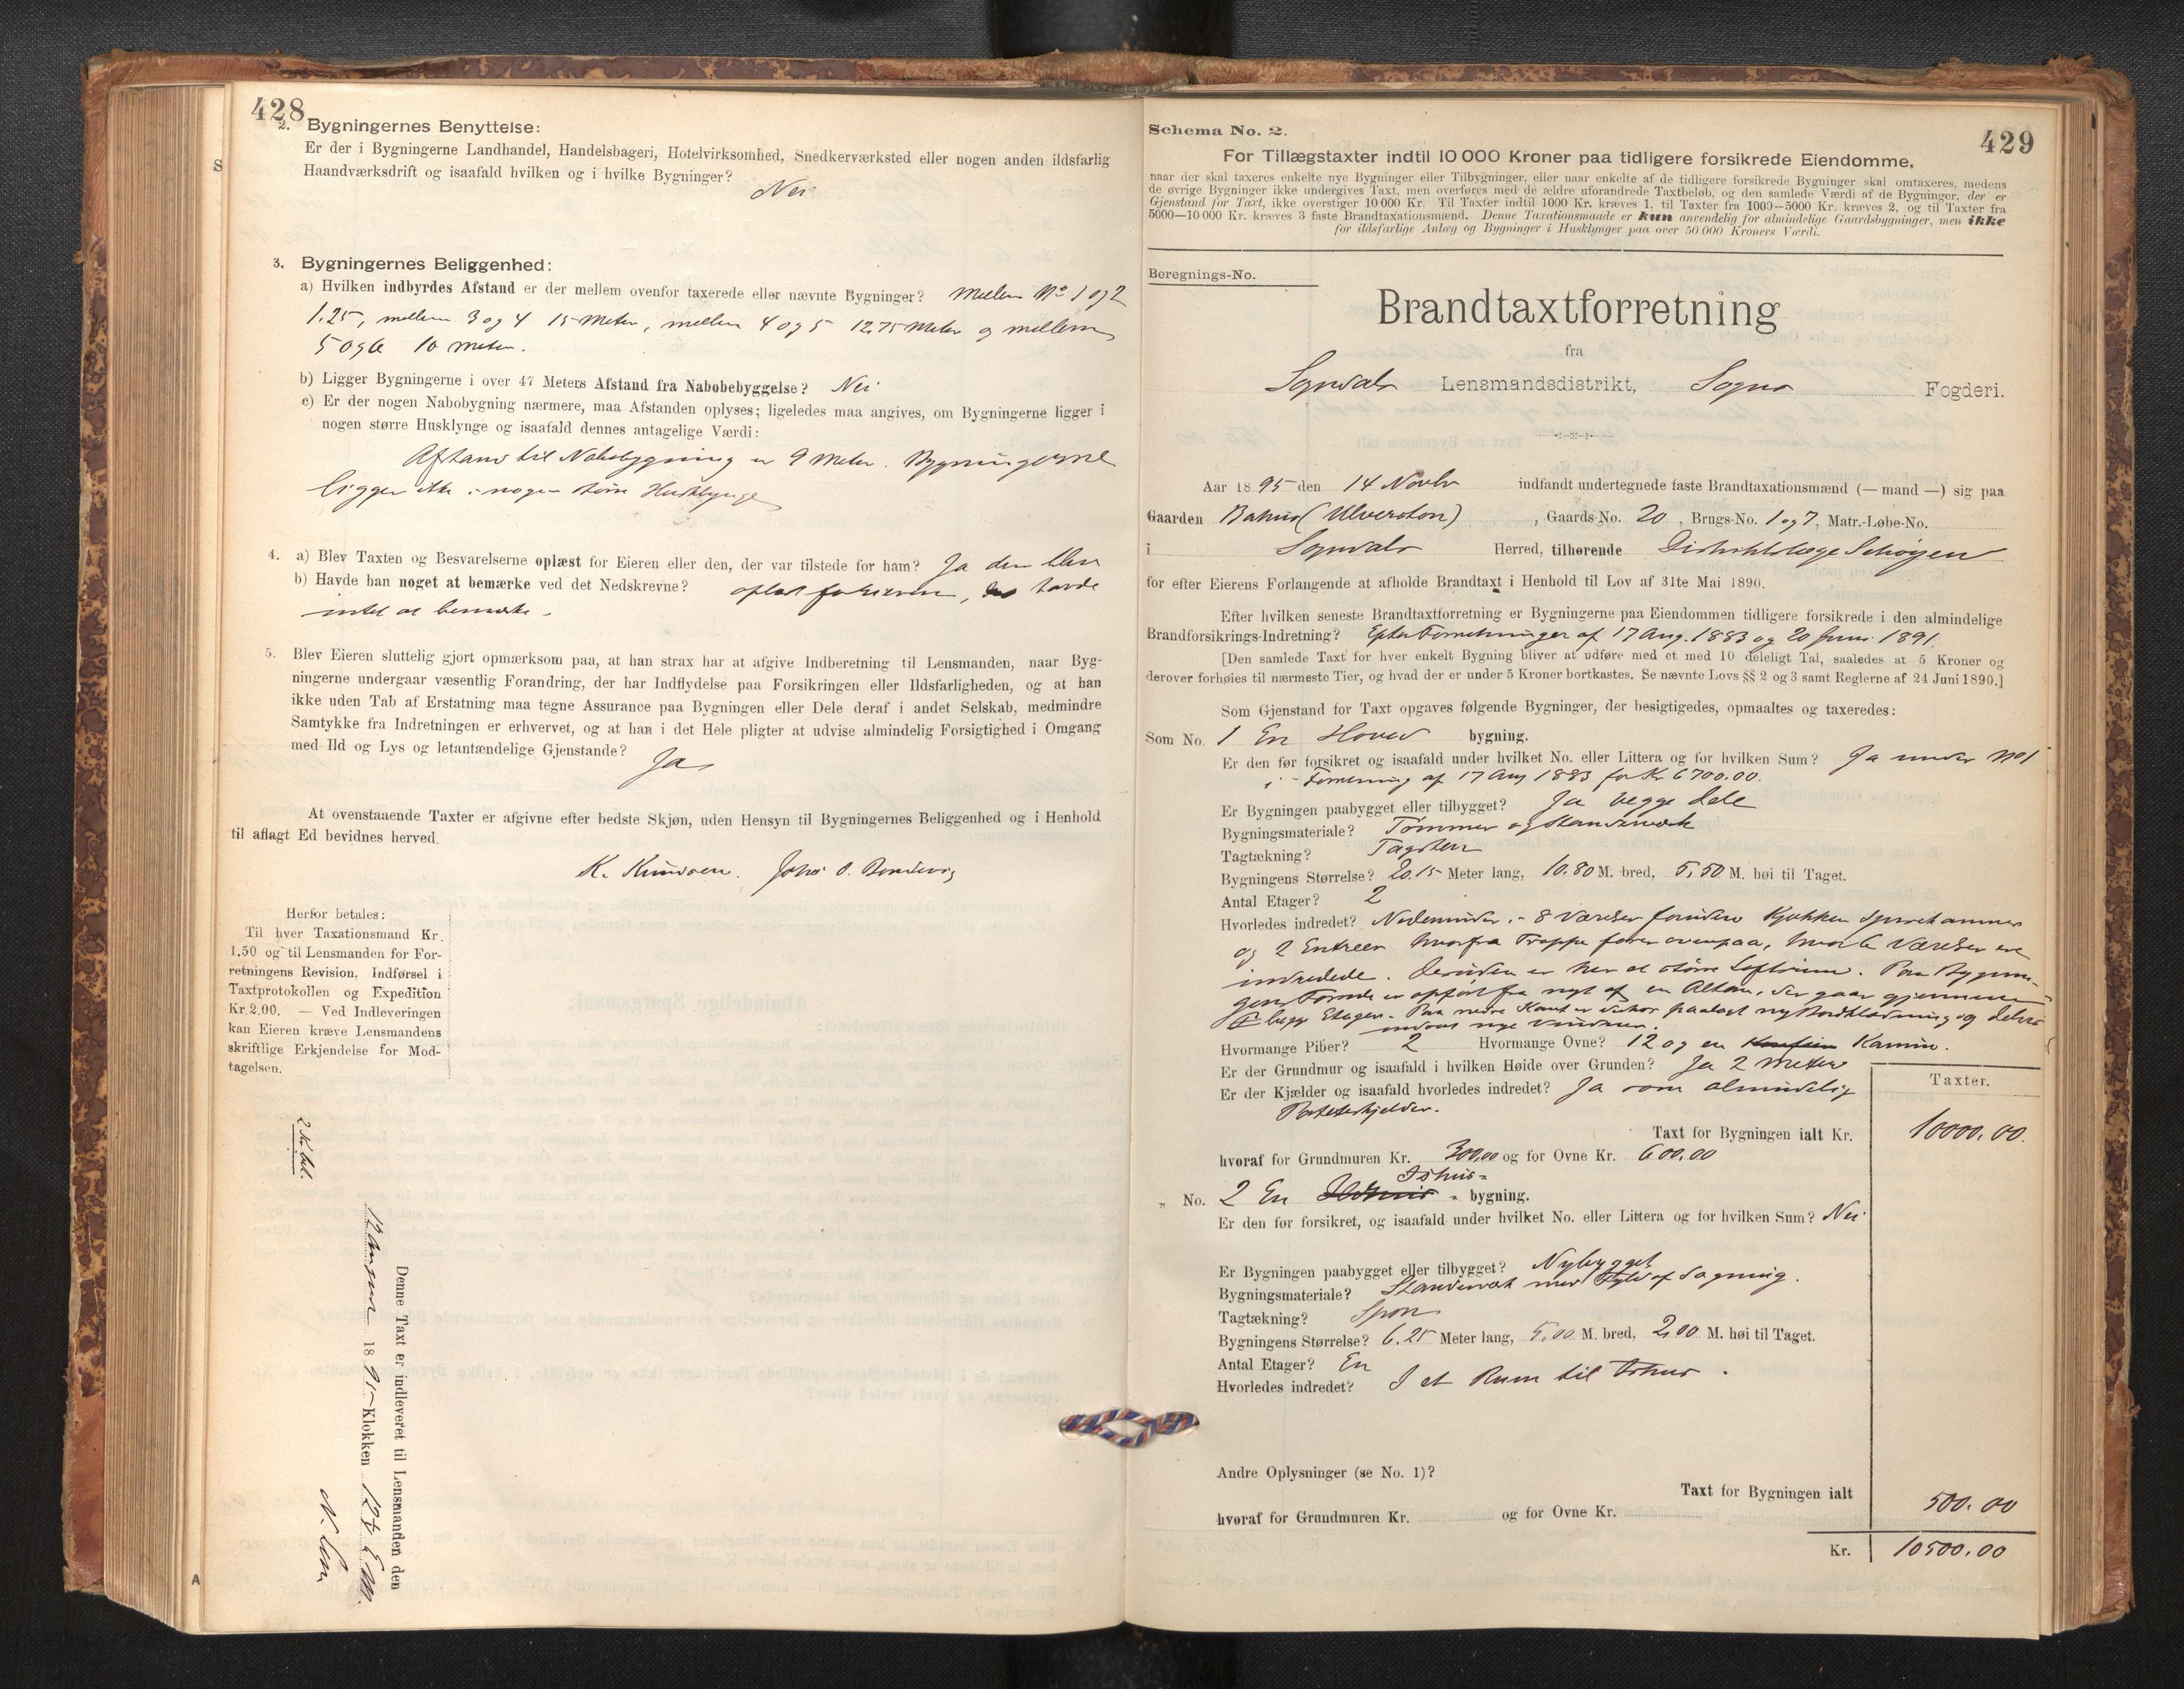 428
2. Bygningernes Benyttelse:
Er der i Bygningerne Landhandel, Handelsbageri, Hotelvirksomhed, Snedkerværksted eller nogen anden ildsfarlig
Haandværksdrift og isaafald hvilken og i hvilke Bygninger?
Nei
3. Bygningernes Beliggenhed:
a) Hvilken indbyrdes Afstand er der mellem ovenfor taxerede eller nævnte Bygninger? Mellem No 1 og 2
1.25, mellem 3 og 4 15 Meter, mellem 4 og 5 12.75 Meter og mellem
5 og 6 10 Meter.
b) Ligger Bygningerne i over 47 Meters Afstand fra Nabobebyggelse? Nei
c) Er der nogen Nabobygning nærmere, maa Afstanden oplyses; ligeledes maa angives, om Bygningerne ligger i
nogen større Husklynge og isaafald dennes antagelige Værdi:
Afstand til Nabobygning er 9 Meter. Bygningerne
ligger ikke i nogen større Husklynge
4. a) Blev Taxten og Besvarelserne oplæst for Eieren eller den, der var tilstede for ham? Ja den blev
b) Havde han noget at bemærke ved det Nedskrevne? oplæst for Eieren, havde
intet at bemærke.
5. Blev Eieren sluttelig gjort opmærksom paa, at han strax har at afgive Indberetning til Lensmanden, naar Byg-
ningerne undergaar væsentlig Forandring, der har Indflydelse paa Forsikringen eller Ildsfarligheden, og at han
ikke uden Tab af Erstatning maa tegne Assurance paa Bygningen eller Dele deraf i andet Selskab, medmindre
Samtykke fra Indretningen er erhvervet, og at han i det Hele pligter at udvise almindelig Forsigtighed i Omgang
med Ild og Lys og letantændelige Gjenstande?
Ja
At ovenstaaende Taxter er afgivne efter bedste Skjøn, uden Hensyn til Bygningernes Beliggenhed og i Henhold
til aflagt Ed bevidnes herved.
K. Knudsen. Johs O.
Herfor betales:
Til hver Taxationsmand Kr.
1.50 og til Lensmanden for For-
retningens Revision, Indførsel i
Taxtprotokollen og Expedition
Kr. 2.00. — Ved Indleveringen
kan Eieren kræve Lensmandens
skriftlige Erkjendelse for Mod-
tagelsen.
2 Kr. bet.
Denne Taxt er indleveret til Lensmanden den
12 August 1895 Klokken 12½ E.M.
429
Schema No. 2.
For Tillægstaxter indtil 10 000 Kroner paa tidligere forsikrede Eiendomme,
naar der skal taxeres enkelte nye Bygninger eller Tilbygninger, eller naar enkelte af de tidligere forsikrede Bygninger skal omtaxeres, medens
de øvrige Bygninger ikke undergives Taxt, men overføres med de ældre uforandrede Taxtbeløb, og den samlede Værdi af de Bygninger, der er
Gjenstand for Taxt, ikke overstiger 10 000 Kr. Til Taxter indtil 1000 Kr. kræves 1, til Taxter fra 1000—5000 Kr. kræves 2, og til Taxter fra
5000—10 000 Kr. kræves 3 faste Brandtaxationsmænd. Denne Taxationsmaade er kun anvendelig for almindelige Gaardsbygninger, men ikke
for ildsfarlige Anlæg og Bygninger i Husklynger paa over 50 000 Kroners Værdi.
Beregnings-No.
Brandtaxtforretning
fra
Sogndals Lensmandsdistrikt, Sogns Fogderi.
Aar 1895 den 14 Novbr indfandt undertegnede faste Brandtaxationsmænd (— mand —) sig paa
Gaarden (Ulverston), Gaards-No. 20, Brugs-No. 1 og 7, Matr.-Løbe-No.
i Sogndals Herred, tilhørende Distriktslæge Schøyen
for efter Eierens Forlangende at afholde Brandtaxt i Henhold til Lov af 31te Mai 1890.
Efter hvilken seneste Brandtaxtforretning er Bygningerne paa Eiendommen tidligere forsikrede i den almindelige
Brandforsikrings-Indretning? Efter Forretninger af 17 Aug. 1883 og 20 Juni 1891.
[Den samlede Taxt for hver enkelt Bygning bliver at udføre med et med 10 deleligt Tal, saaledes at 5 Kroner og
derover forhøies til nærmeste Tier, og hvad der er under 5 Kroner bortkastes. Se nævnte Lovs §§ 2 og 3 samt Reglerne af 24 Juni 1890.]
Som Gjenstand for Taxt opgaves følgende Bygninger, der besigtigedes, opmaaltes og taxeredes:
Som No. 1 En Hoved bygning.
Er den før forsikret og isaafald under hvilket No. eller Littera og for hvilken Sum? Ja under No 1
i Forretning af 17 Aug 1883 for Kr 6700.00.
Er Bygningen paabygget eller tilbygget? Ja begge Dele
Bygningsmateriale? Tømmer og Standerværk
Tagtækning? Tagsten
Bygningens Størrelse? 20.15 Meter lang, 10.80 M. bred, 5,50 M. høi til Taget.
Antal Etager? 2
Hvorledes indredet? Nedenunder i 8 Værelser foruden Kjøkken Spisekammer
og 2 Entreer hvorfra Trappe fører ovenpaa, hvor 6 Værelser ere
indredede. Desuden er her et større Loftsrum. Paa Bygnin-
gens Forside er opført fra nyt af en Altan, der gaar gjennem
begge Etager. Paa nedre Kant er paalagt ny Bordklædning og delvis
indsat nye Vinduer.
Hvormange Piber? 2 Hvormange Ovne? 12 og en Kamin.
Er der Grundmur og isaafald i hvilken Høide over Grunden? Ja 2 Meter
Er der Kjælder og isaafald hvorledes indredet? Ja som almindelig
Potetskjelder.
Taxter.
Taxt for Bygningen ialt Kr. 10000.00.
hvoraf for Grundmuren Kr. 300,00 og for Ovne Kr. 600.00
Ishus-
„ No. 2 En bygning.
Er den før forsikret, og isaafald under hvilket No. eller Littera og for hvilken Sum? Nei
Er Bygningen paabygget eller tilbygget? Nybygget
Bygningsmateriale? Standerværk med Fyld af Sagmug.
Tagtækning? Spon
Bygningens Størrelse? 6.25 Meter lang, 5.00 M. bred, 2,00 M. høi til Taget.
Antal Etager? En
Hvorledes indredet? I et Rum til Ishus.
Andre Oplysninger (se No. 1)?
Taxt for Bygningen ialt 500.00
hvoraf for Grundmuren Kr. og for Ovne Kr.
Kr. 10500.00